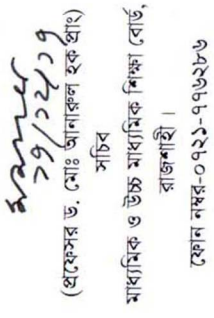 ১৭/১২/১৭
(প্রফেসর ড. মোঃ আনারুল হক প্রাং)
সচিব
মাধ্যমিক ও উচ্চ মাধ্যমিক শিক্ষা বোর্ড,
রাজশাহী।
ফোন নম্বর-০৭২১-৭৭৬২৮৬